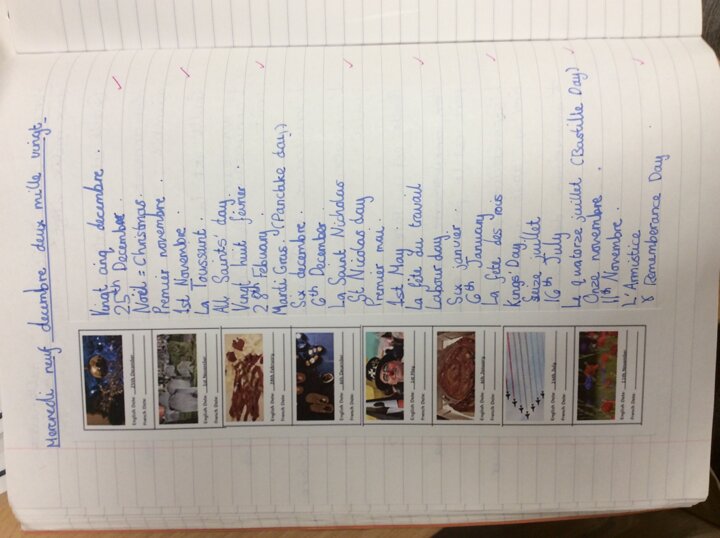 Mercredi neuf decembre deux mille vingt
Vingt cinq decembre.
25th December.
Noël = Christmas.
Premier novembre.
1st Novembre.
La Toussaint.
All Saints' day.
Vingt huit février.
28th Febuary
Mardi Gras (Pancake day)
Six decembre.
6th December
La Saint Nicholas
St Nicolas day
Premier mai.
1st May
La fête du travail
Labour day.
Six janvier.
6th January
La fête des rois
Kings' Day.
Seize juillet
16th July
Le quatorze juillet (Bastille Day)
Onze novembre.
11th Novembre.
L'Armistice
& Rememberance Day
English Date: 25th December
French Date:
English Date: 1st November
French Date:
English Date: 28th February
French Date:
English Date: 6th December
French Date:
English Date: 1st May
French Date:
English Date: 6th January
French Date:
English Date: July
French Date:
English Date: 11th November
French Date: